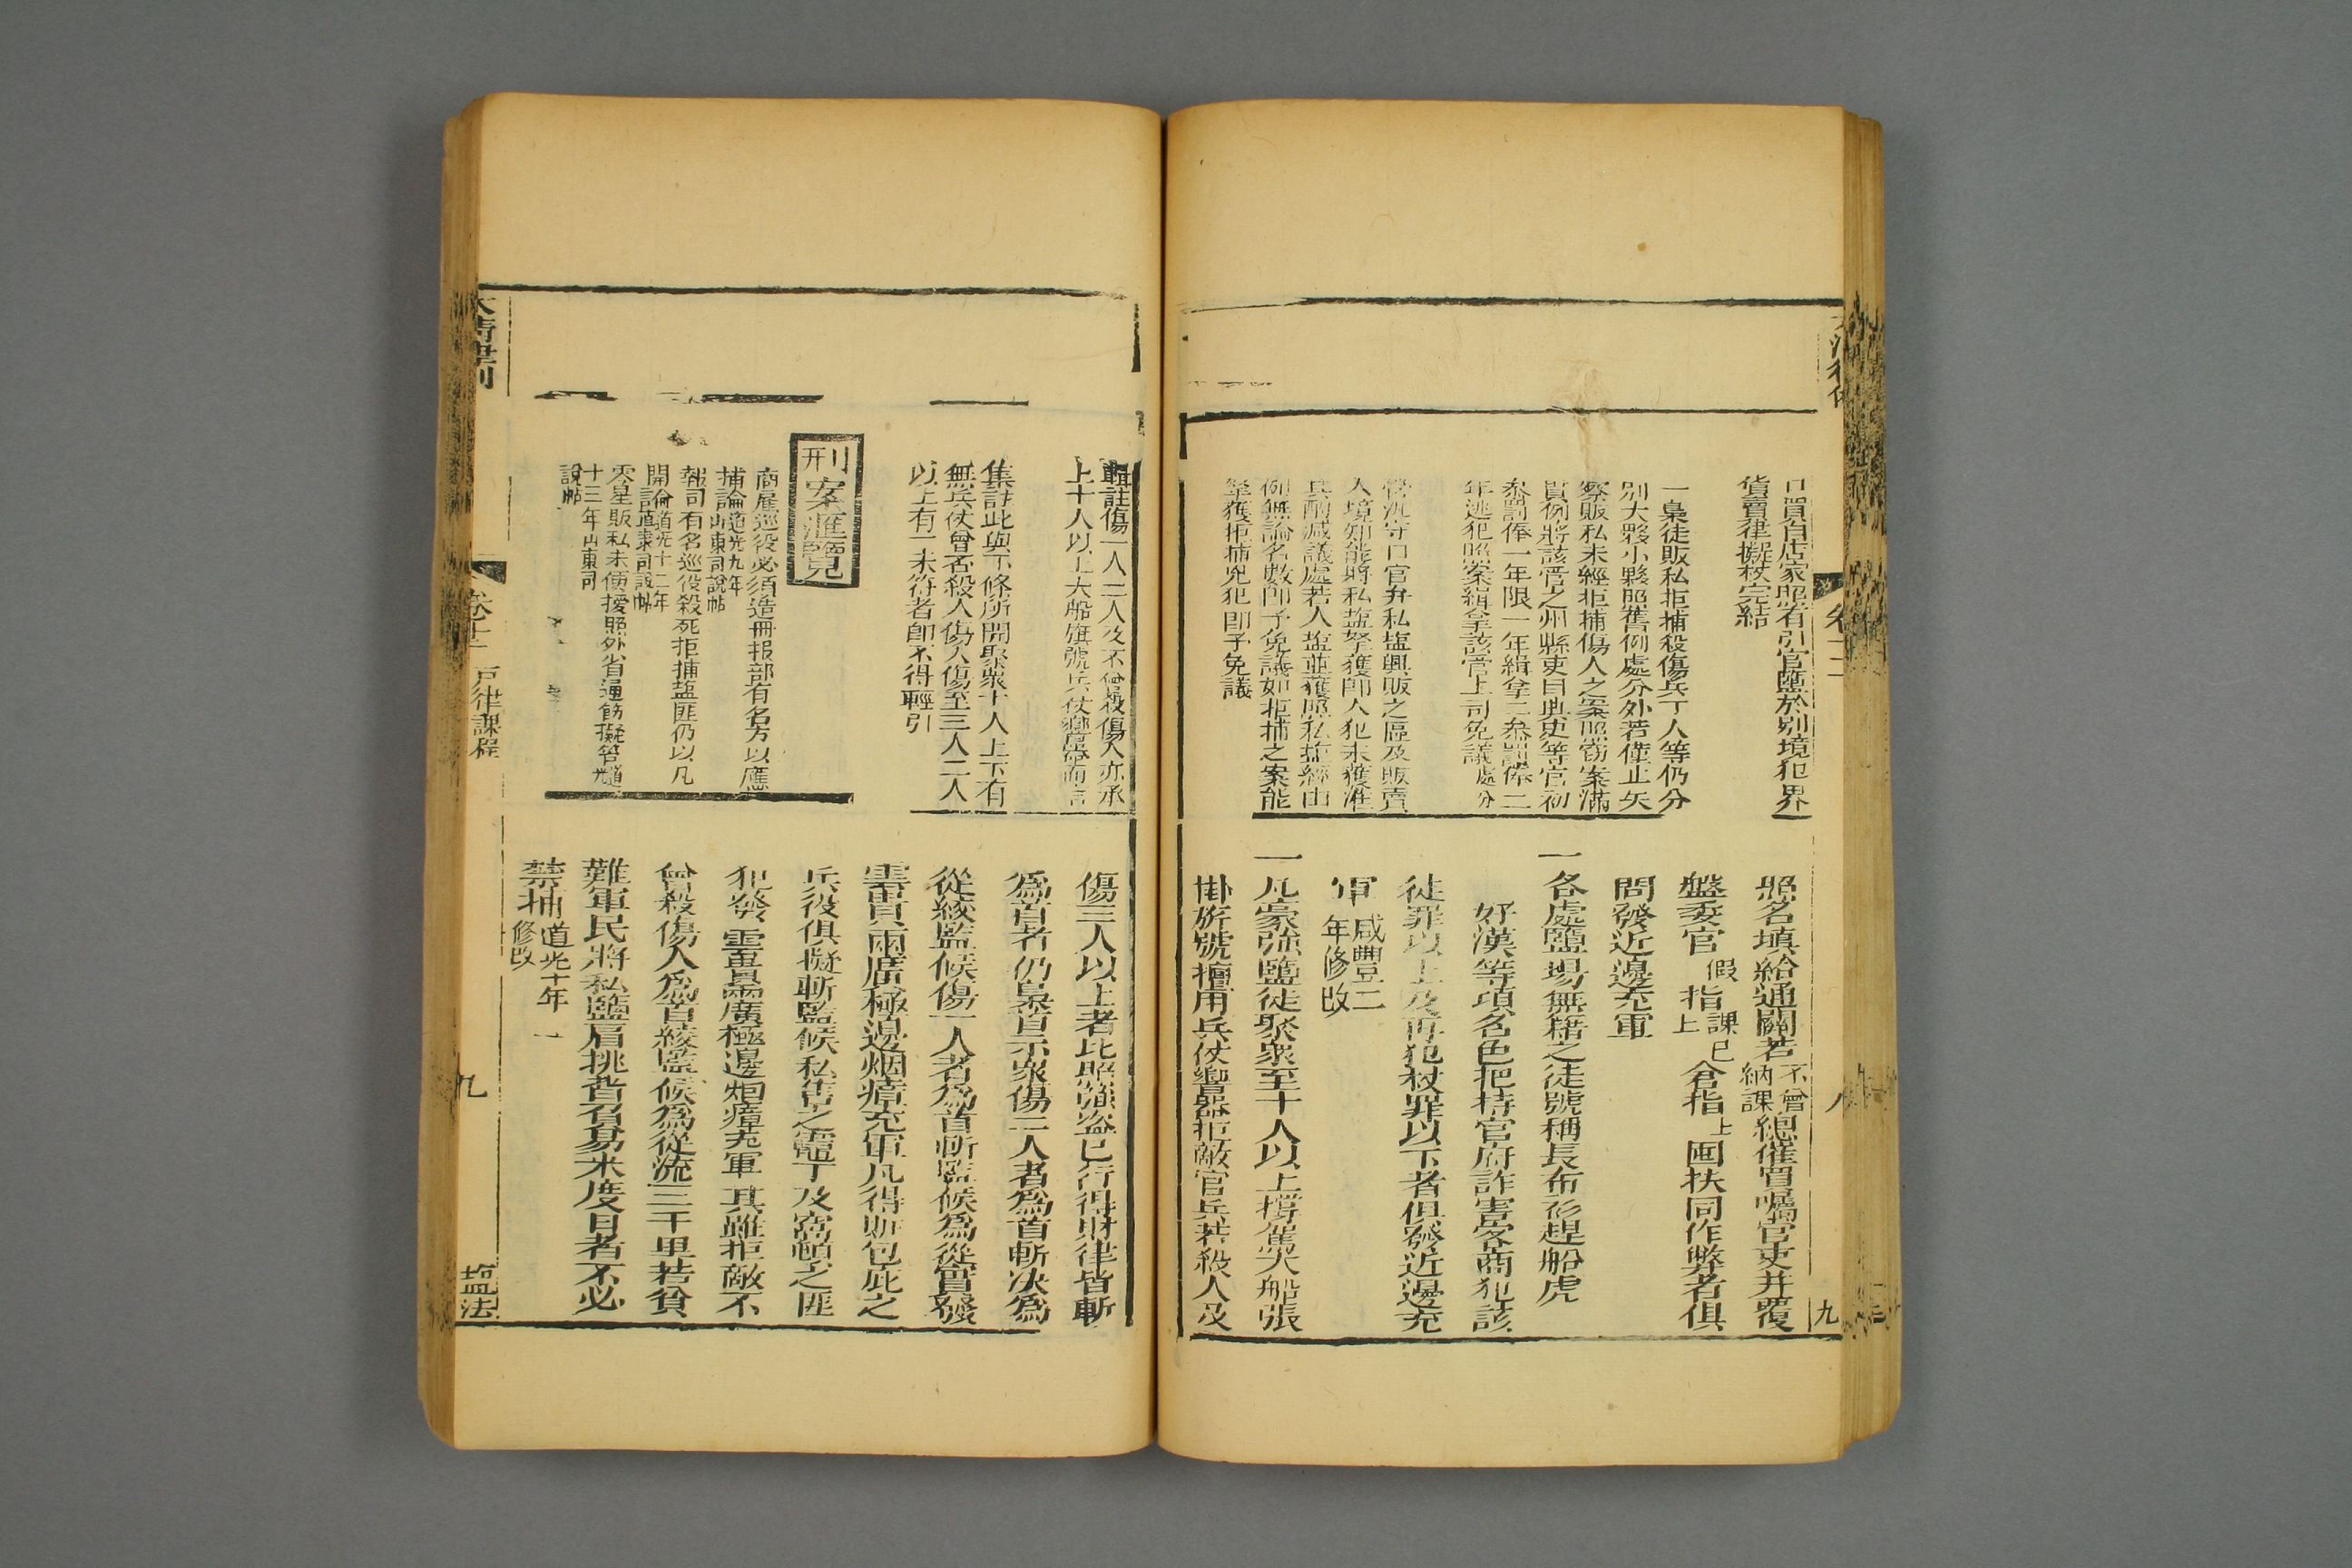 口買自店家照者引官鹽於別境犯界
貨賣律擬杖完結
一梟徒販私拒捕殺傷兵丁人等仍分
別大夥小夥照舊例處分外若僅止失
察販私未經拒捕傷人之案照窃案滿
貫例將該管之州縣吏目典史等官初
叅罰俸一年限一年緝拿二叅罰俸二
年逃犯照案緝拿該管上司免議處分
營汛守口官弁私塩興販之區及販賣
入境知能將私塩拏獲即人犯未獲准
其酌減議處若人塩並獲照私塩經由
例無論名數即予免議如拒捕之案能
拏獲拒捕兇犯即予免議
照名填給通關若不曾納課總催買囑官吏并覆
盤委官假指課已上倉指上囤扶同作弊者俱
問發近邊充軍
一各處鹽場無籍之徒號稱長布衫趕船虎
好漢等項名色把持官府詐害客商犯該
徒罪以上及再犯杖罪以下者俱發近邊充
軍咸豐二年修改
一凡豪强鹽徒聚衆至十人以上撐駕大船張
掛旂號擅用兵仗響器拒敵官兵若殺人及
九
輯註傷一人二人及不曾殺傷人亦承
上十人以上大船旗號兵仗響器而言
集註此與下條所開聚衆十人上下有
無兵仗曾否殺人傷人傷至三人二人
以上有一未符者即不得輕引
刑案滙覽
商雇巡役必須造冊报部有名方以應
捕論道光九年山東司說帖
報司有名巡役殺死拒捕塩匪仍以凡
開論道光十二年直隶司說帖
零星販私未便援照外省通飭擬笞道光
十三年山東司
說帖
傷三人以上者比照強盗已行得財律皆斬
爲首者仍梟首示衆傷二人者爲首斬决爲
從絞監候傷一人者爲首斬監候爲從實發
雲貴兩廣極邊烟瘴充軍凡得賍包庇之
兵役俱擬斬監候私售之竈丁及窩頓之匪
犯發雲貴兩廣極邊烟瘴充軍其雖拒敵不
曾殺傷人爲首絞監候爲從流三千里若貧
難軍民將私鹽肩挑背負易米度日者不必
禁捕道光十年修改
大清律例
卷十二
戶律課程
九
塩法